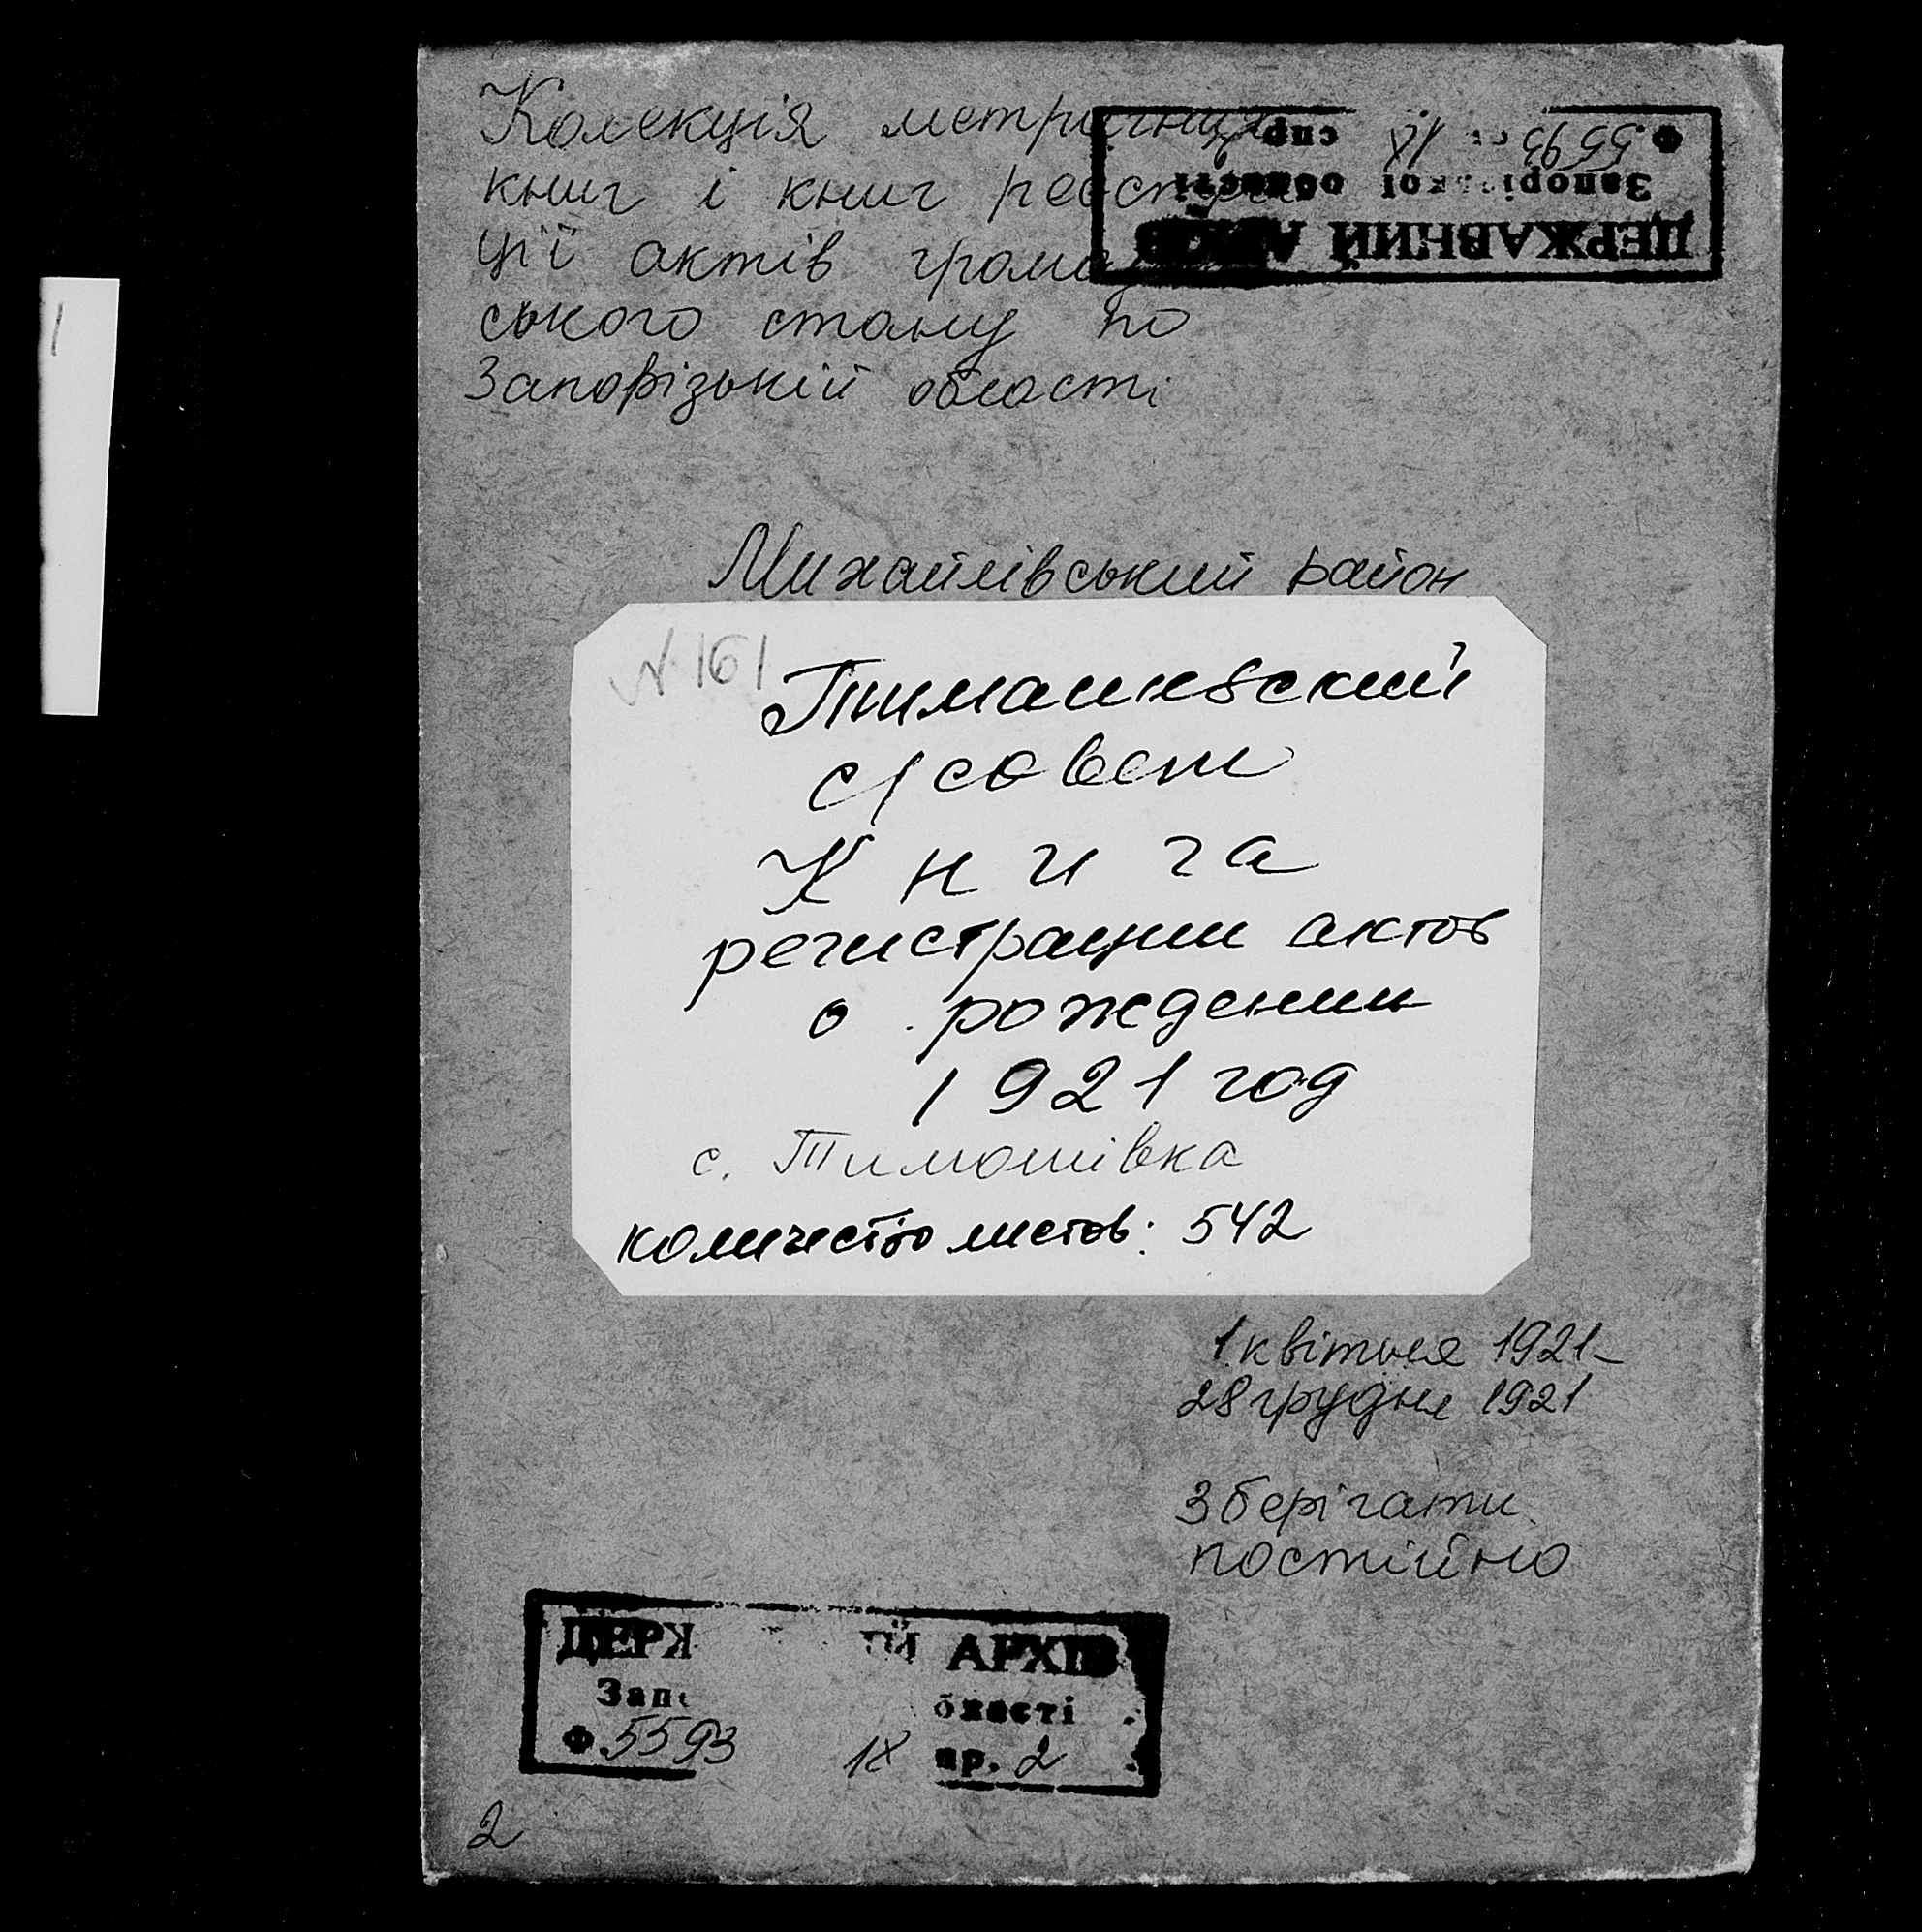 Колекція метричних
книг і книг реєстра
ції актів громадян
ського стану по
Запорізькій області
ДЕРЖАВНИЙ АРХІВ
Запорізької області
Ф. 5593 оп. 1X спр.
Михайлівський район
N 161
Тимашевский
с/совет
Книга
регистрации актов
о рождении
1921 год
с. Тимошівка
количество листов: 542
1 квітня 1921-
28 грудня 1921
Зберігати
постійно
ДЕРЖ ИЙ АРХІВ
Запо бласті
Ф. 5593 1X пр. 2
2